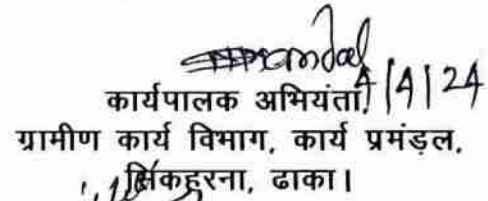 4/4/24
कार्यपालक अभियंता,
ग्रामीण कार्य विभाग, कार्य प्रमंडल,
सिकहरना, ढाका।